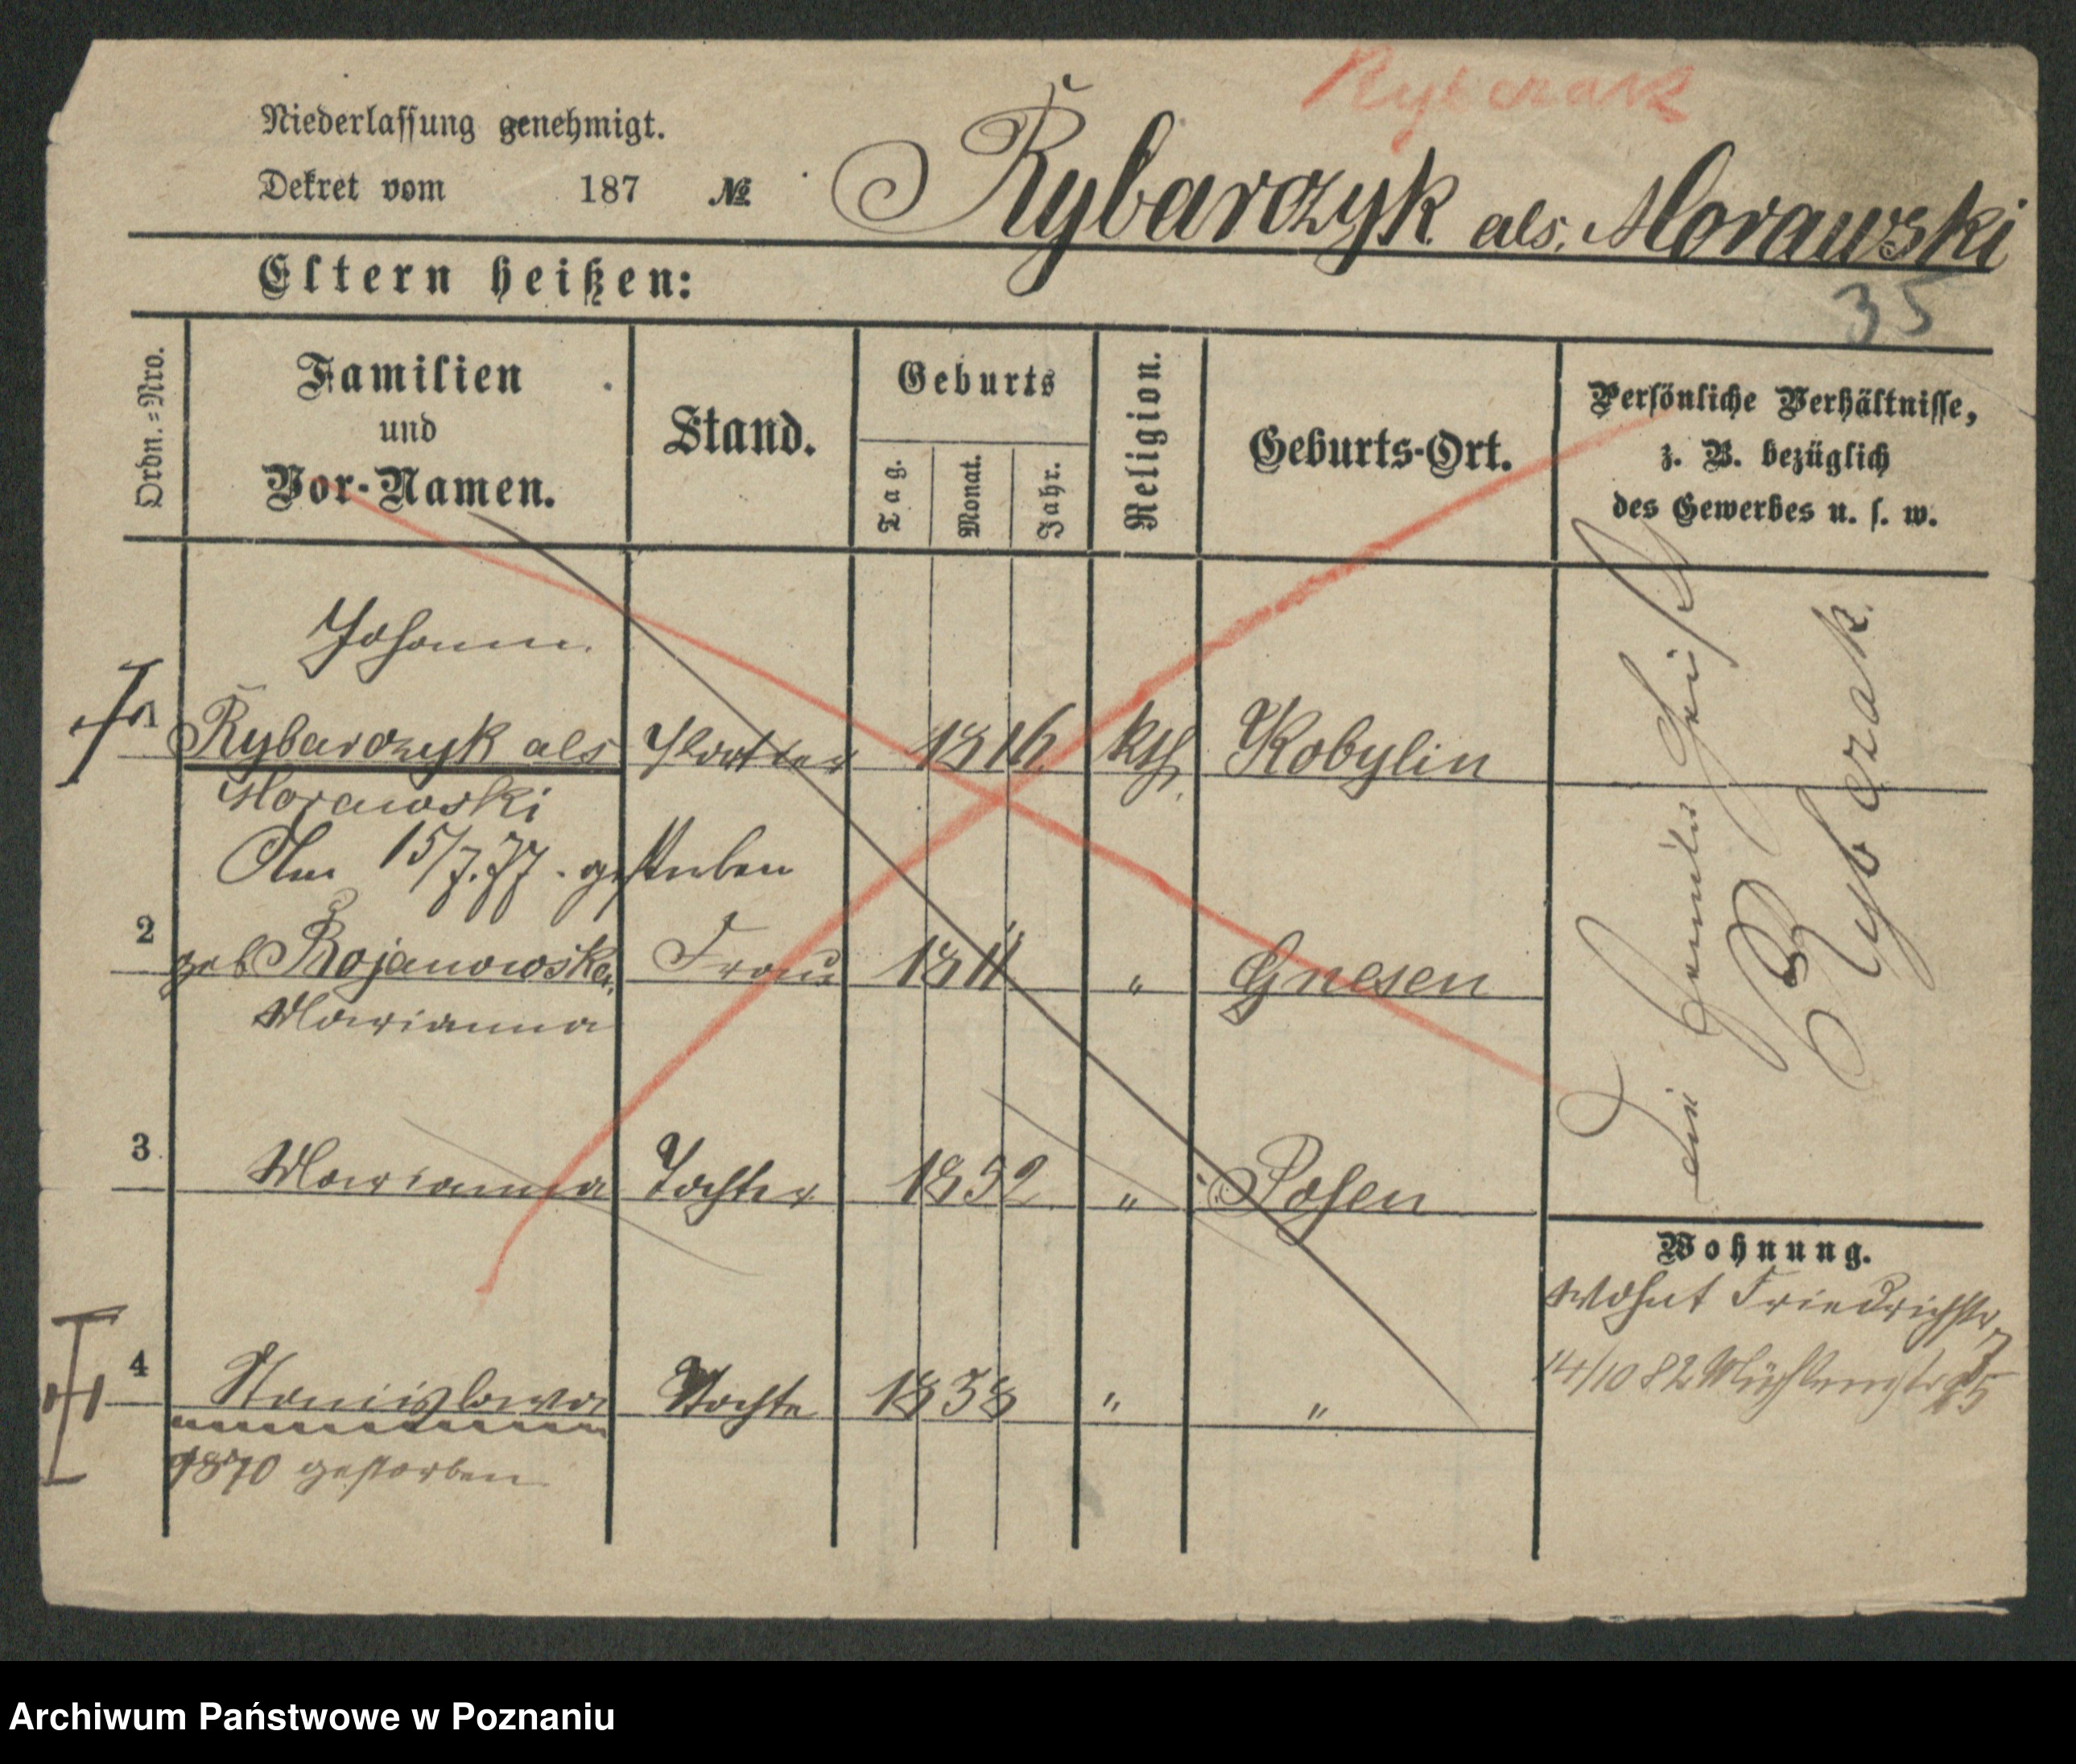 Rybczak
Niederlassung genehmigt.
Dekret vom 187 №
Rybarczyk als. Morawski
35
Eltern heißen:
Ordn.-Nro.
Familien
und
Vor-Namen.
Stand.
Geburts
Tag.
Monat.
Jahr.
Religion.
Geburts-Ort.
Persönliche Verhältnisse,
z. B. bezüglich
des Gewerbes u. s. w.
Johann
1 Rybarczyk als 1816 kth. Kobylin
Morawski
Am 15/7.77. gestorben
2 geb Rojanowska Frau 1811 " Gnesen
Marianna
3 Marianna Tochter 1852 " Posen
4 Stanislawa Tochter 1838 " "
1870 gestorben
die Familie heißt
Rybczak.
Wohnung.
wohnt Friedrichstr
14/10 82 Mühlenstr